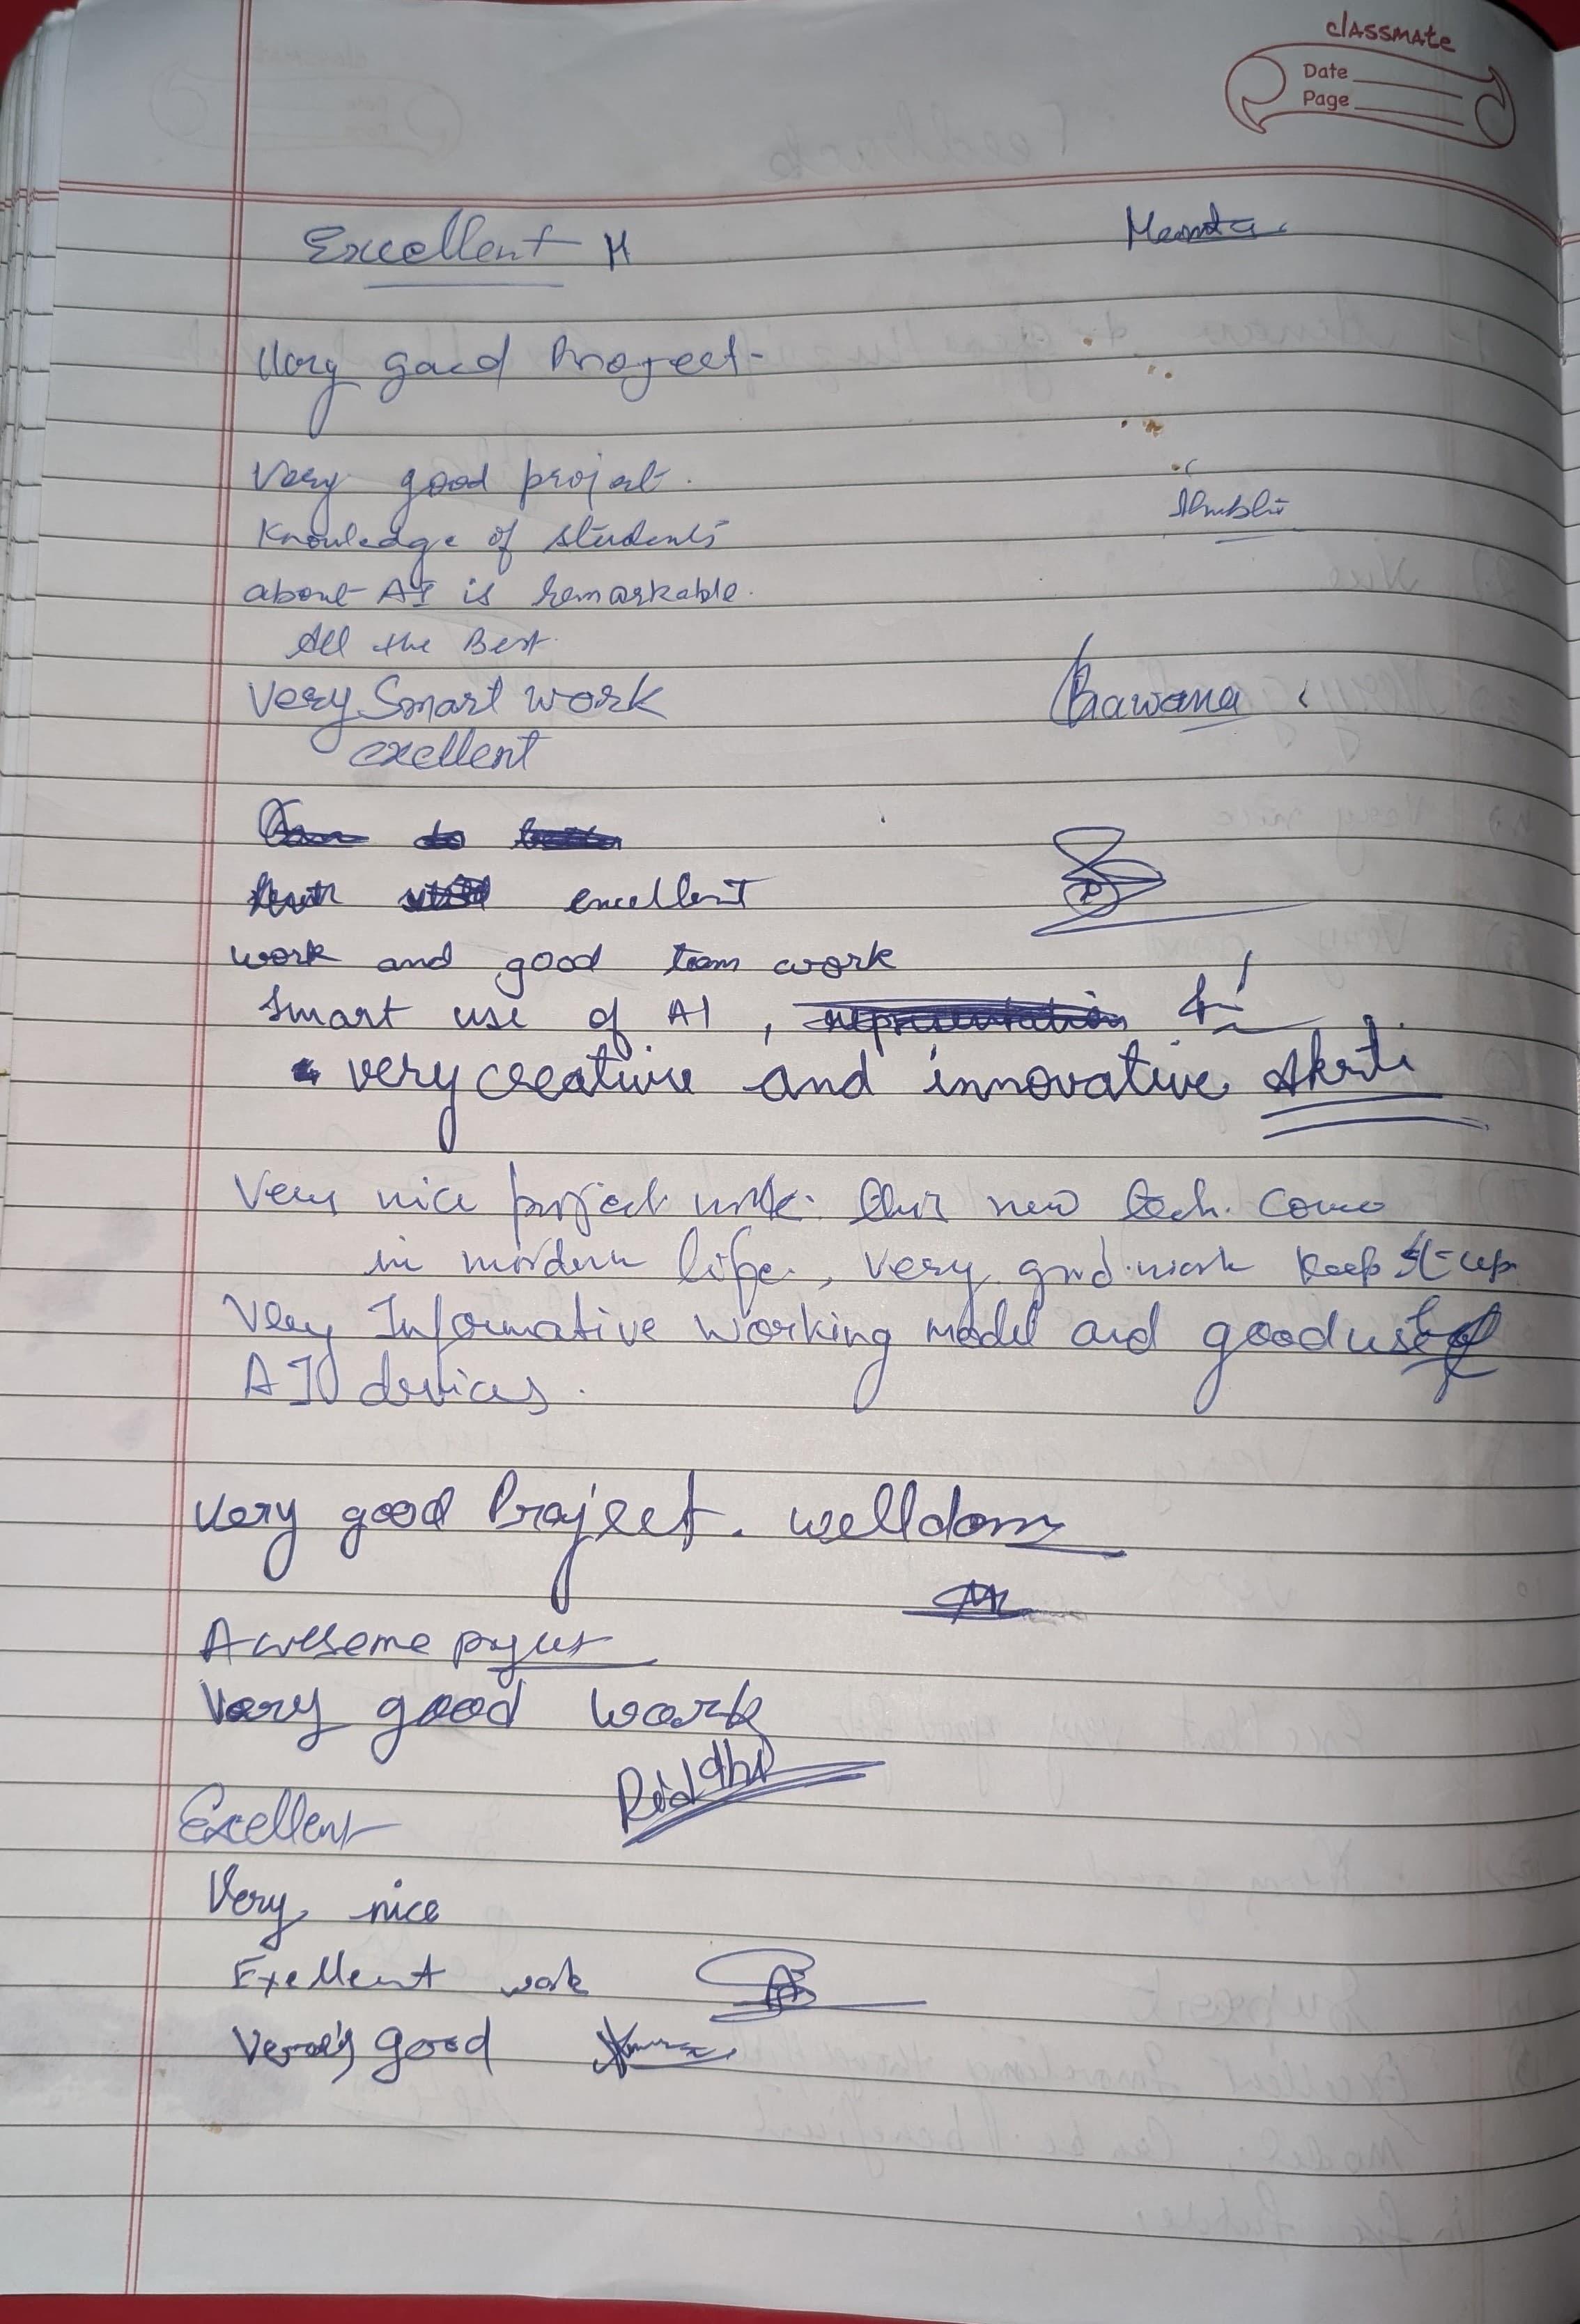 classmate
Date
Page
Excellent H
Mamta
Very good Project-
Very good project.
Knowledge of students
about AI is remarkable.
All the Best.
Shubhi
Very Smart work
exellent
Bhawana
excellent
work and good team work
Smart use of AI,
very creative and innovative Akriti
Very nice project work. this new tech. come
in mordern life, very good work keep it up
Very Informative working model and good use of
AI devices.
Very good Project. welldone
Awesome project
Very good work
Riddhi
Excellent
Very nice
Exellent work
Very good